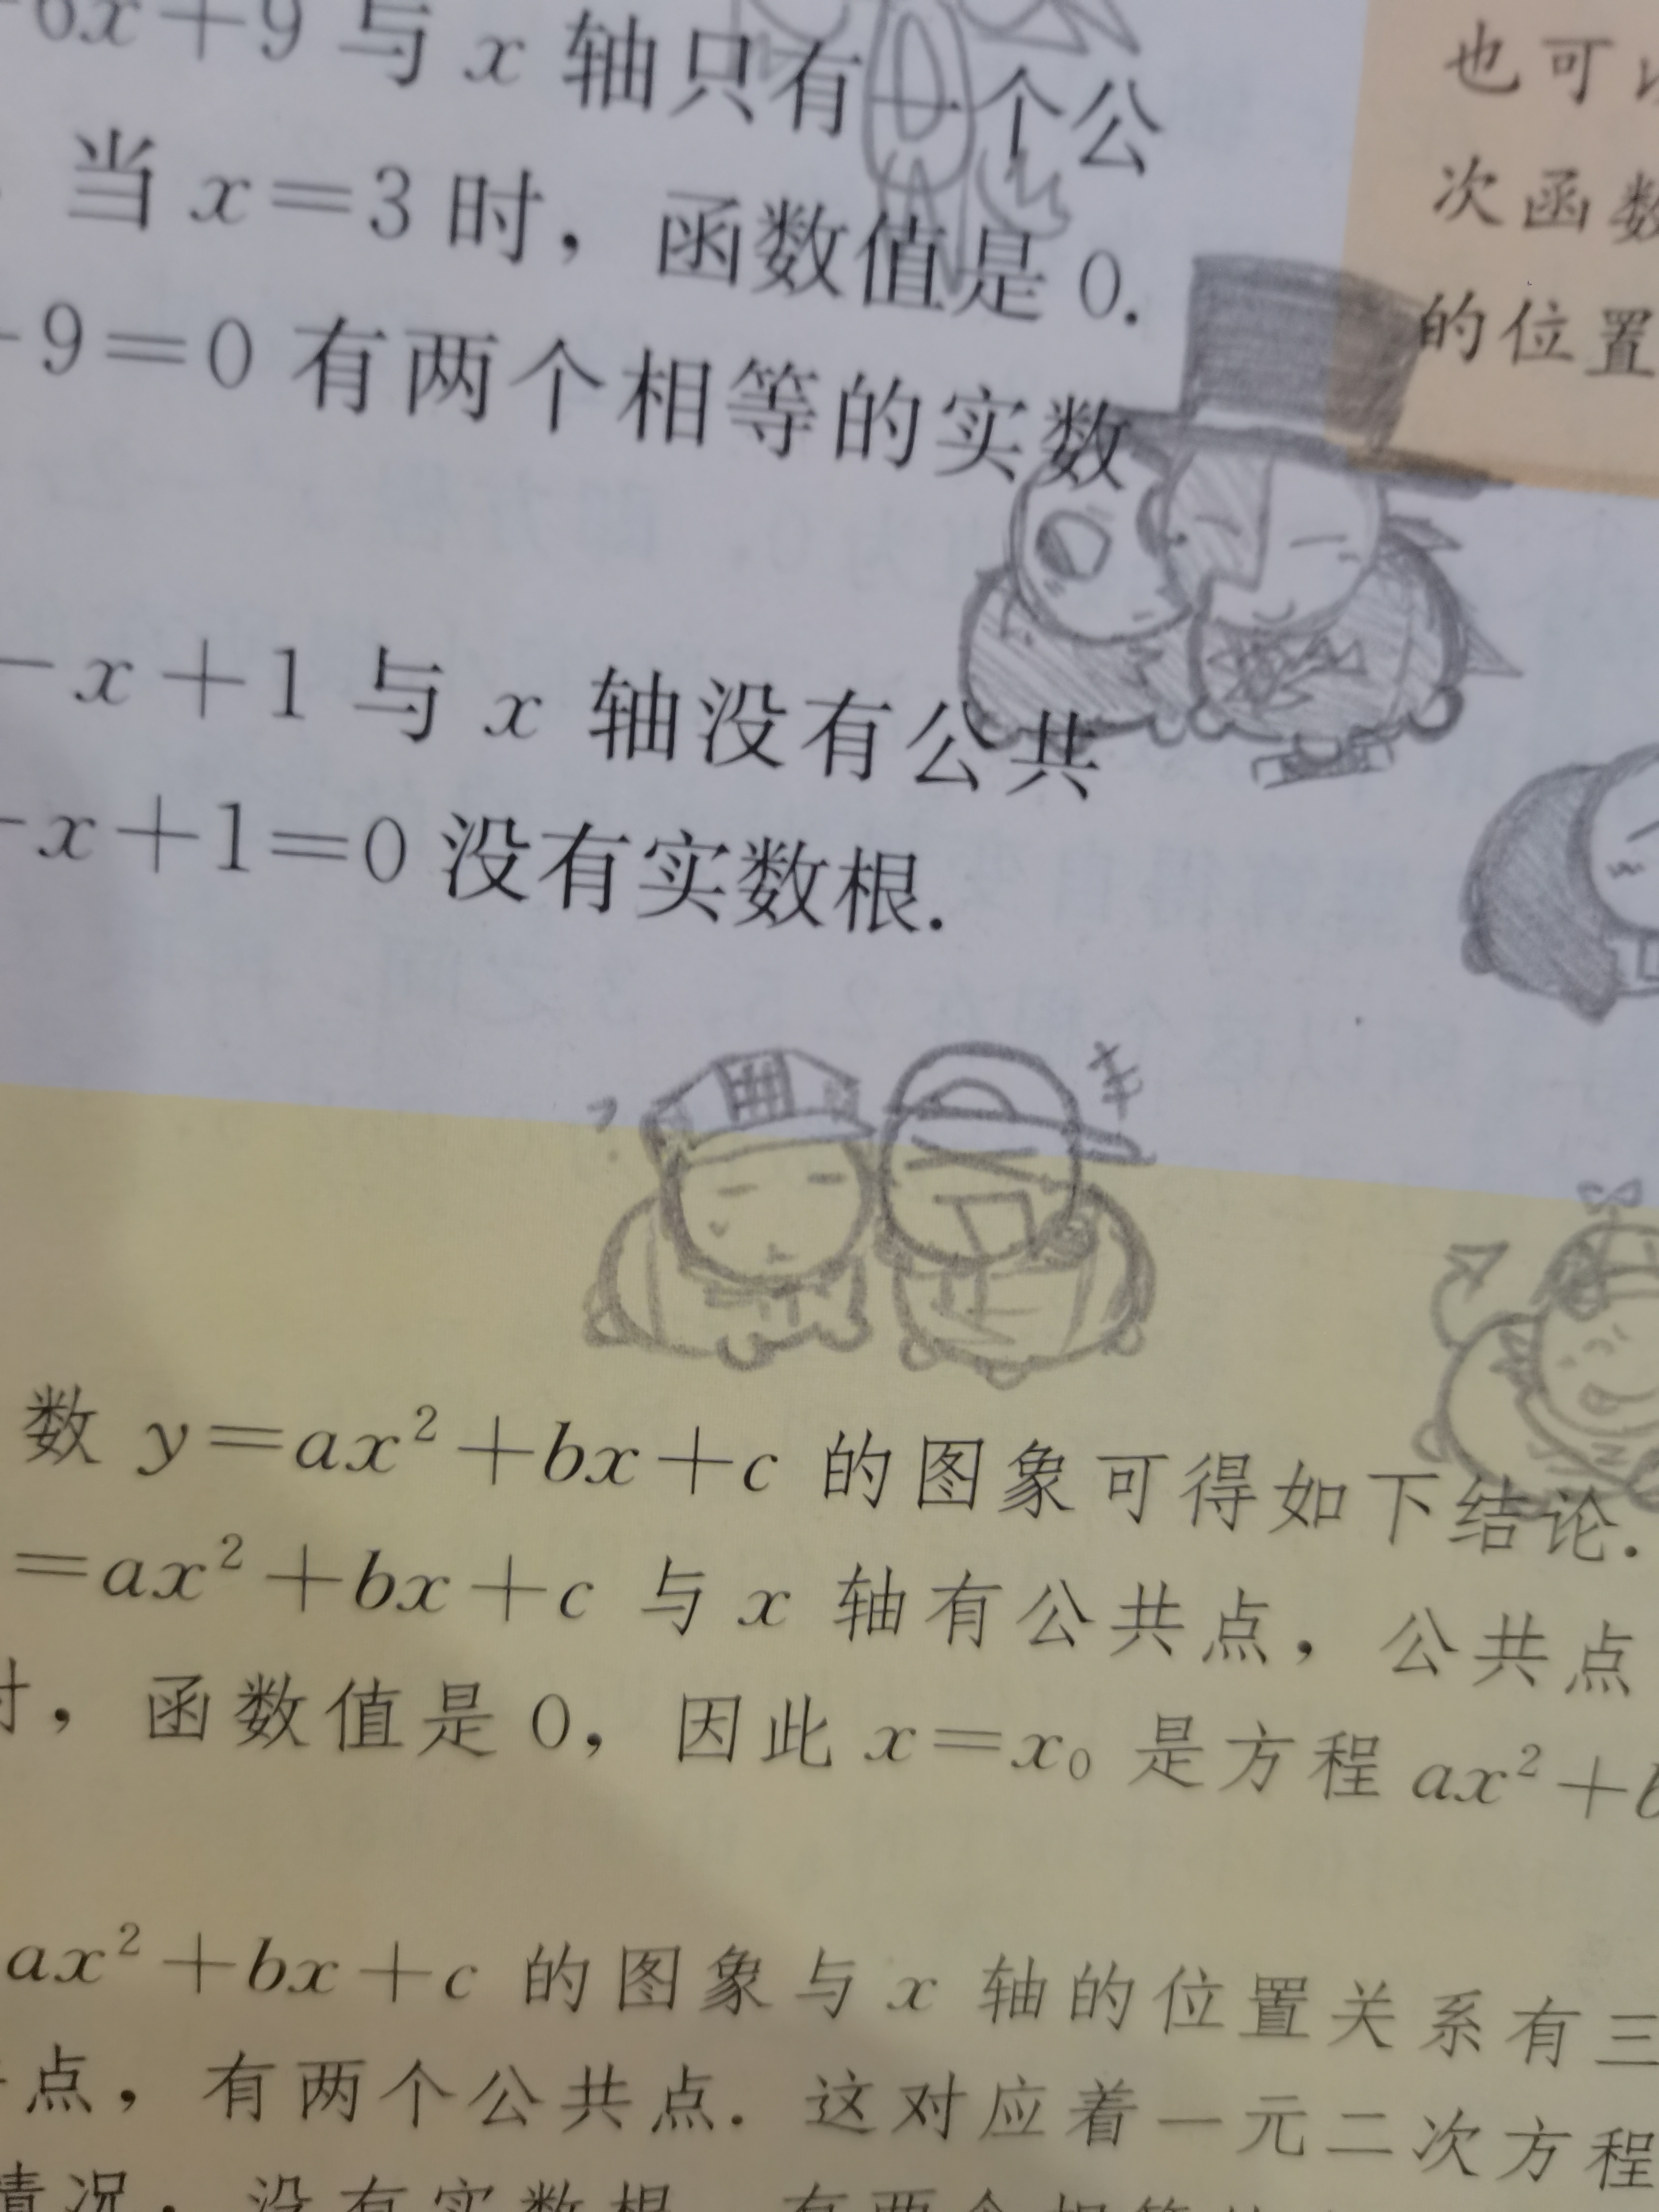 6x+9 与 x 轴只有一个公
也可以
当 x=3 时，函数值是 0.
次函数
的位置
-9=0 有两个相等的实数
-x+1 与 x 轴没有公共
-x+1=0 没有实数根.
?
数 y=ax²+bx+c 的图象可得如下结论.
=ax²+bx+c 与 x 轴有公共点，公共点
时，函数值是 0，因此 x=x₀ 是方程 ax²+b
ax²+bx+c 的图象与 x 轴的位置关系有三
点，有两个公共点. 这对应着一元二次方程
情况：没有实数根，有两个相等